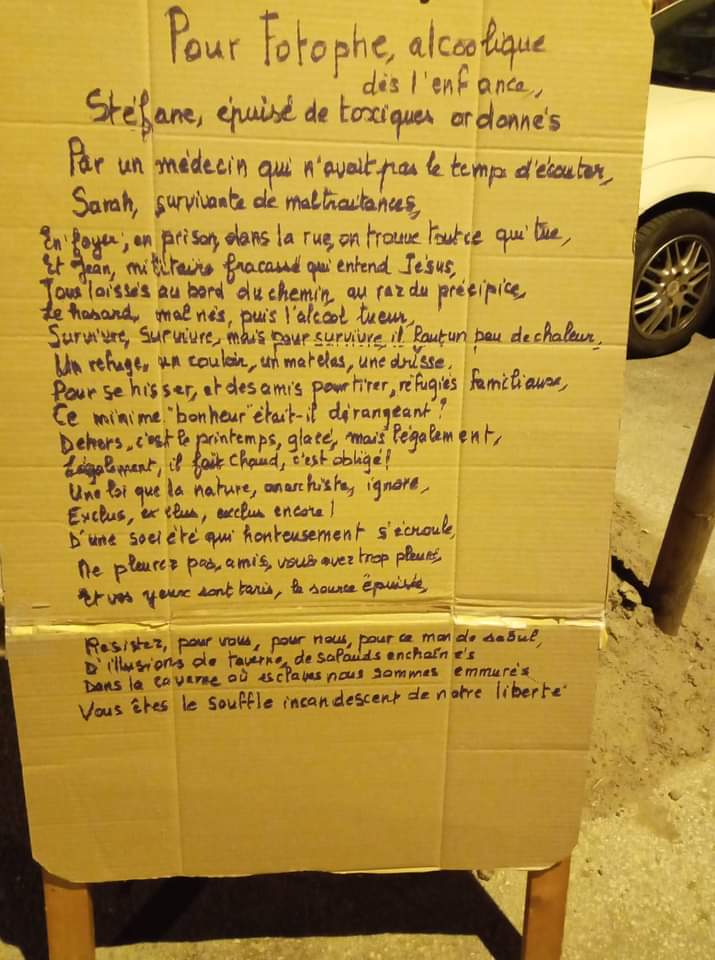 Pour Fotophe, alcoolique
dès l'enfance,
Stéfane, épuisé de toxiques ordonnés
Par un médecin qui n'avait pas le temps d'écouter,
Sarah, survivante de maltraitances,
En foyer, en prison, dans la rue, on trouve tout ce qui tue,
Et Jean, militaire fracassé qui entend Jésus,
Tous laissés au bord du chemin, au raz du précipice,
Le hasard, mal nés, puis l'alcool tueur,
Survivre, survivre, mais pour survivre il faut un peu de chaleur,
Un refuge, un couloir, un matelas, une drisse,
Pour se hisser, et des amis pour tirer, réfugiés familiaux,
Ce minime "bonheur" était-il dérangeant ?
Dehors, c'est le printemps, glacé, mais légalement,
Légalement, il fait chaud, c'est obligé !
Une loi que la nature, anarchiste, ignore,
Exclus, exclus, exclus encore !
D'une société qui honteusement s'écroule,
Ne pleurez pas, amis, vous avez trop pleuré,
Et vos yeux sont taris, la source épuisée,
Resistez, pour vous, pour nous, pour ce monde saoul,
D'illusions de taverne, de salauds enchaînés
Dans la caverne où esclaves nous sommes emmurés
Vous êtes le souffle incandescent de notre liberté